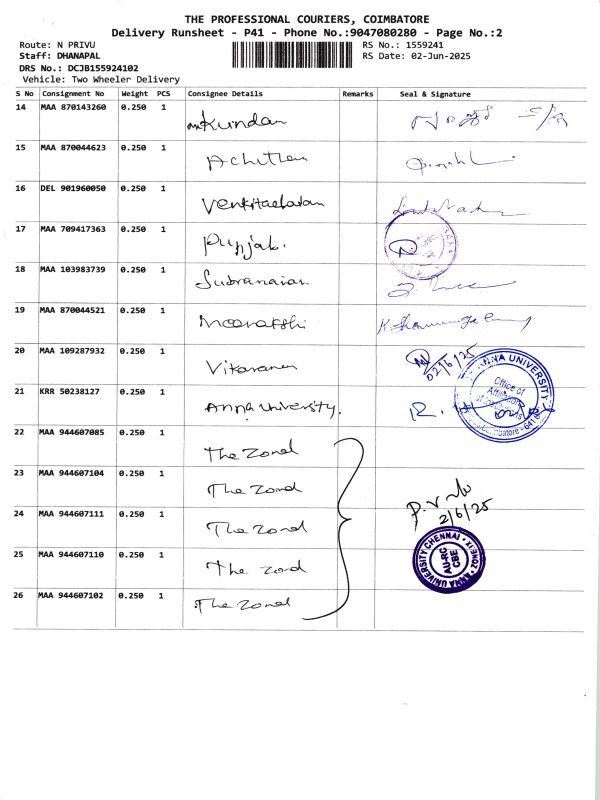 THE PROFESSIONAL COURIERS, COIMBATORE
Delivery Runsheet - P41 - Phone No.:9047080280 - Page No.:2
Route: N PRIVU
RS No.: 1559241
Staff: DHANAPAL
RS Date: 02-Jun-2025
DRS No.: DCJB155924102
Vehicle: Two Wheeler Delivery
S No Consignment No Weight PCS Consignee Details Remarks Seal & Signature
14 MAA 870143260 0.250 1 Kundan
15 MAA 870044623 0.250 1
16 DEL 901960050 0.250 1
17 MAA 709417363 0.250 1 Punjab.
18 MAA 103983739 0.250 1
19 MAA 870044521 0.250 1 Meenakshi
20 MAA 109287932 0.250 1 02/6/25
21 KRR 50238127 0.250 1 Anna University.
ANNA UNIVERSITY
Office of
22 MAA 944607085 0.250 1 The Zonal
23 MAA 944607104 0.250 1 The Zonal
24 MAA 944607111 0.250 1 The Zonal
2/6/25
25 MAA 944607110 0.250 1 The Zonal
ANNA UNIVERSITY CHENNAI
AU-RC
CBE
26 MAA 944607102 0.250 1 The Zonal